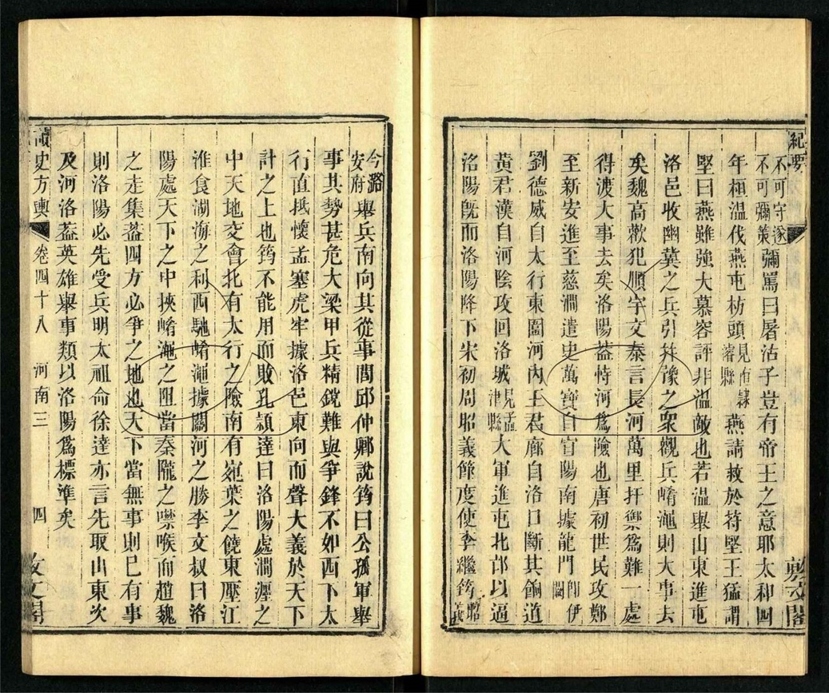 紀要
不可守遂
不可彌策
彌罵曰屠沽子豈有帝王之意耶太和四
年桓溫伐燕屯枋頭
見直隷
濬縣
燕請救於苻堅王猛謂
堅曰燕雖強大慕容評非溫敵也若溫舉山東進屯
洛邑收幽冀之兵引并豫之衆觀兵崤澠則大事去
矣魏高歡犯順宇文泰言長河萬里扞禦爲難一處
得渡大事去矣洛陽葢恃河爲險也唐初世民攻鄭
至新安進至慈澗遣史萬寶自宜陽南據龍門
卽伊
闕
劉德威自太行東圍河內王君廓自洛口斷其餉道
黃君漢自河陰攻回洛城
見孟
津縣
大軍進屯北邙以逼
洛陽旣而洛陽降下宋初周昭義節度使李
筠
敷文閣
今潞
安府
舉兵南向其從事閭邱仲卿說筠曰公孤軍舉
事其勢甚危大梁甲兵精銳難與爭鋒不如西下太
行直抵懷孟塞虎牢據洛邑東向而聲大義於天下
計之上也筠不能用而敗孔穎達曰洛陽處澗瀍之
中天地交會北有太行之險南有宛葉之饒東壓江
淮食湖海之利西馳崤澠據關河之勝李文叔曰洛
陽處天下之中挾崤澠之阻當秦隴之噤喉而趙魏
之走集葢四方必爭之地也天下當無事則已有事
則洛陽必先受兵明太祖命徐達亦言先取山東次
及河洛葢英雄舉事類以洛陽爲標準矣
讀史方輿
卷四十八
河南三
四
敷文閣